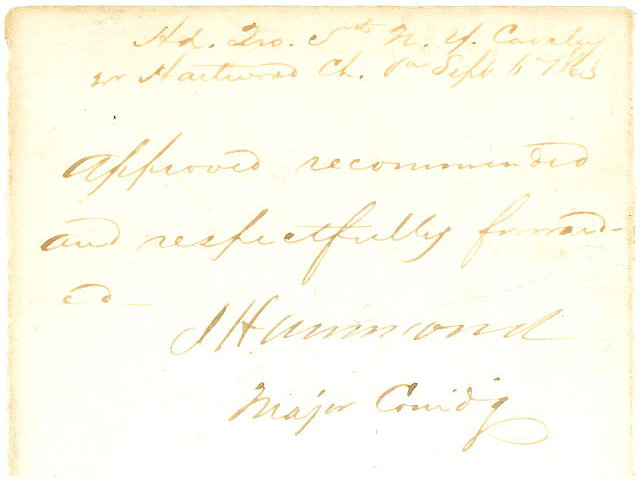 Hd. Qrs. 5th N. Y. Cavalry
nr Hartwood Ch. Va Sept 1863
Approved recommended
and respectfully forward-
ed
J Hammond
Major Comd'g